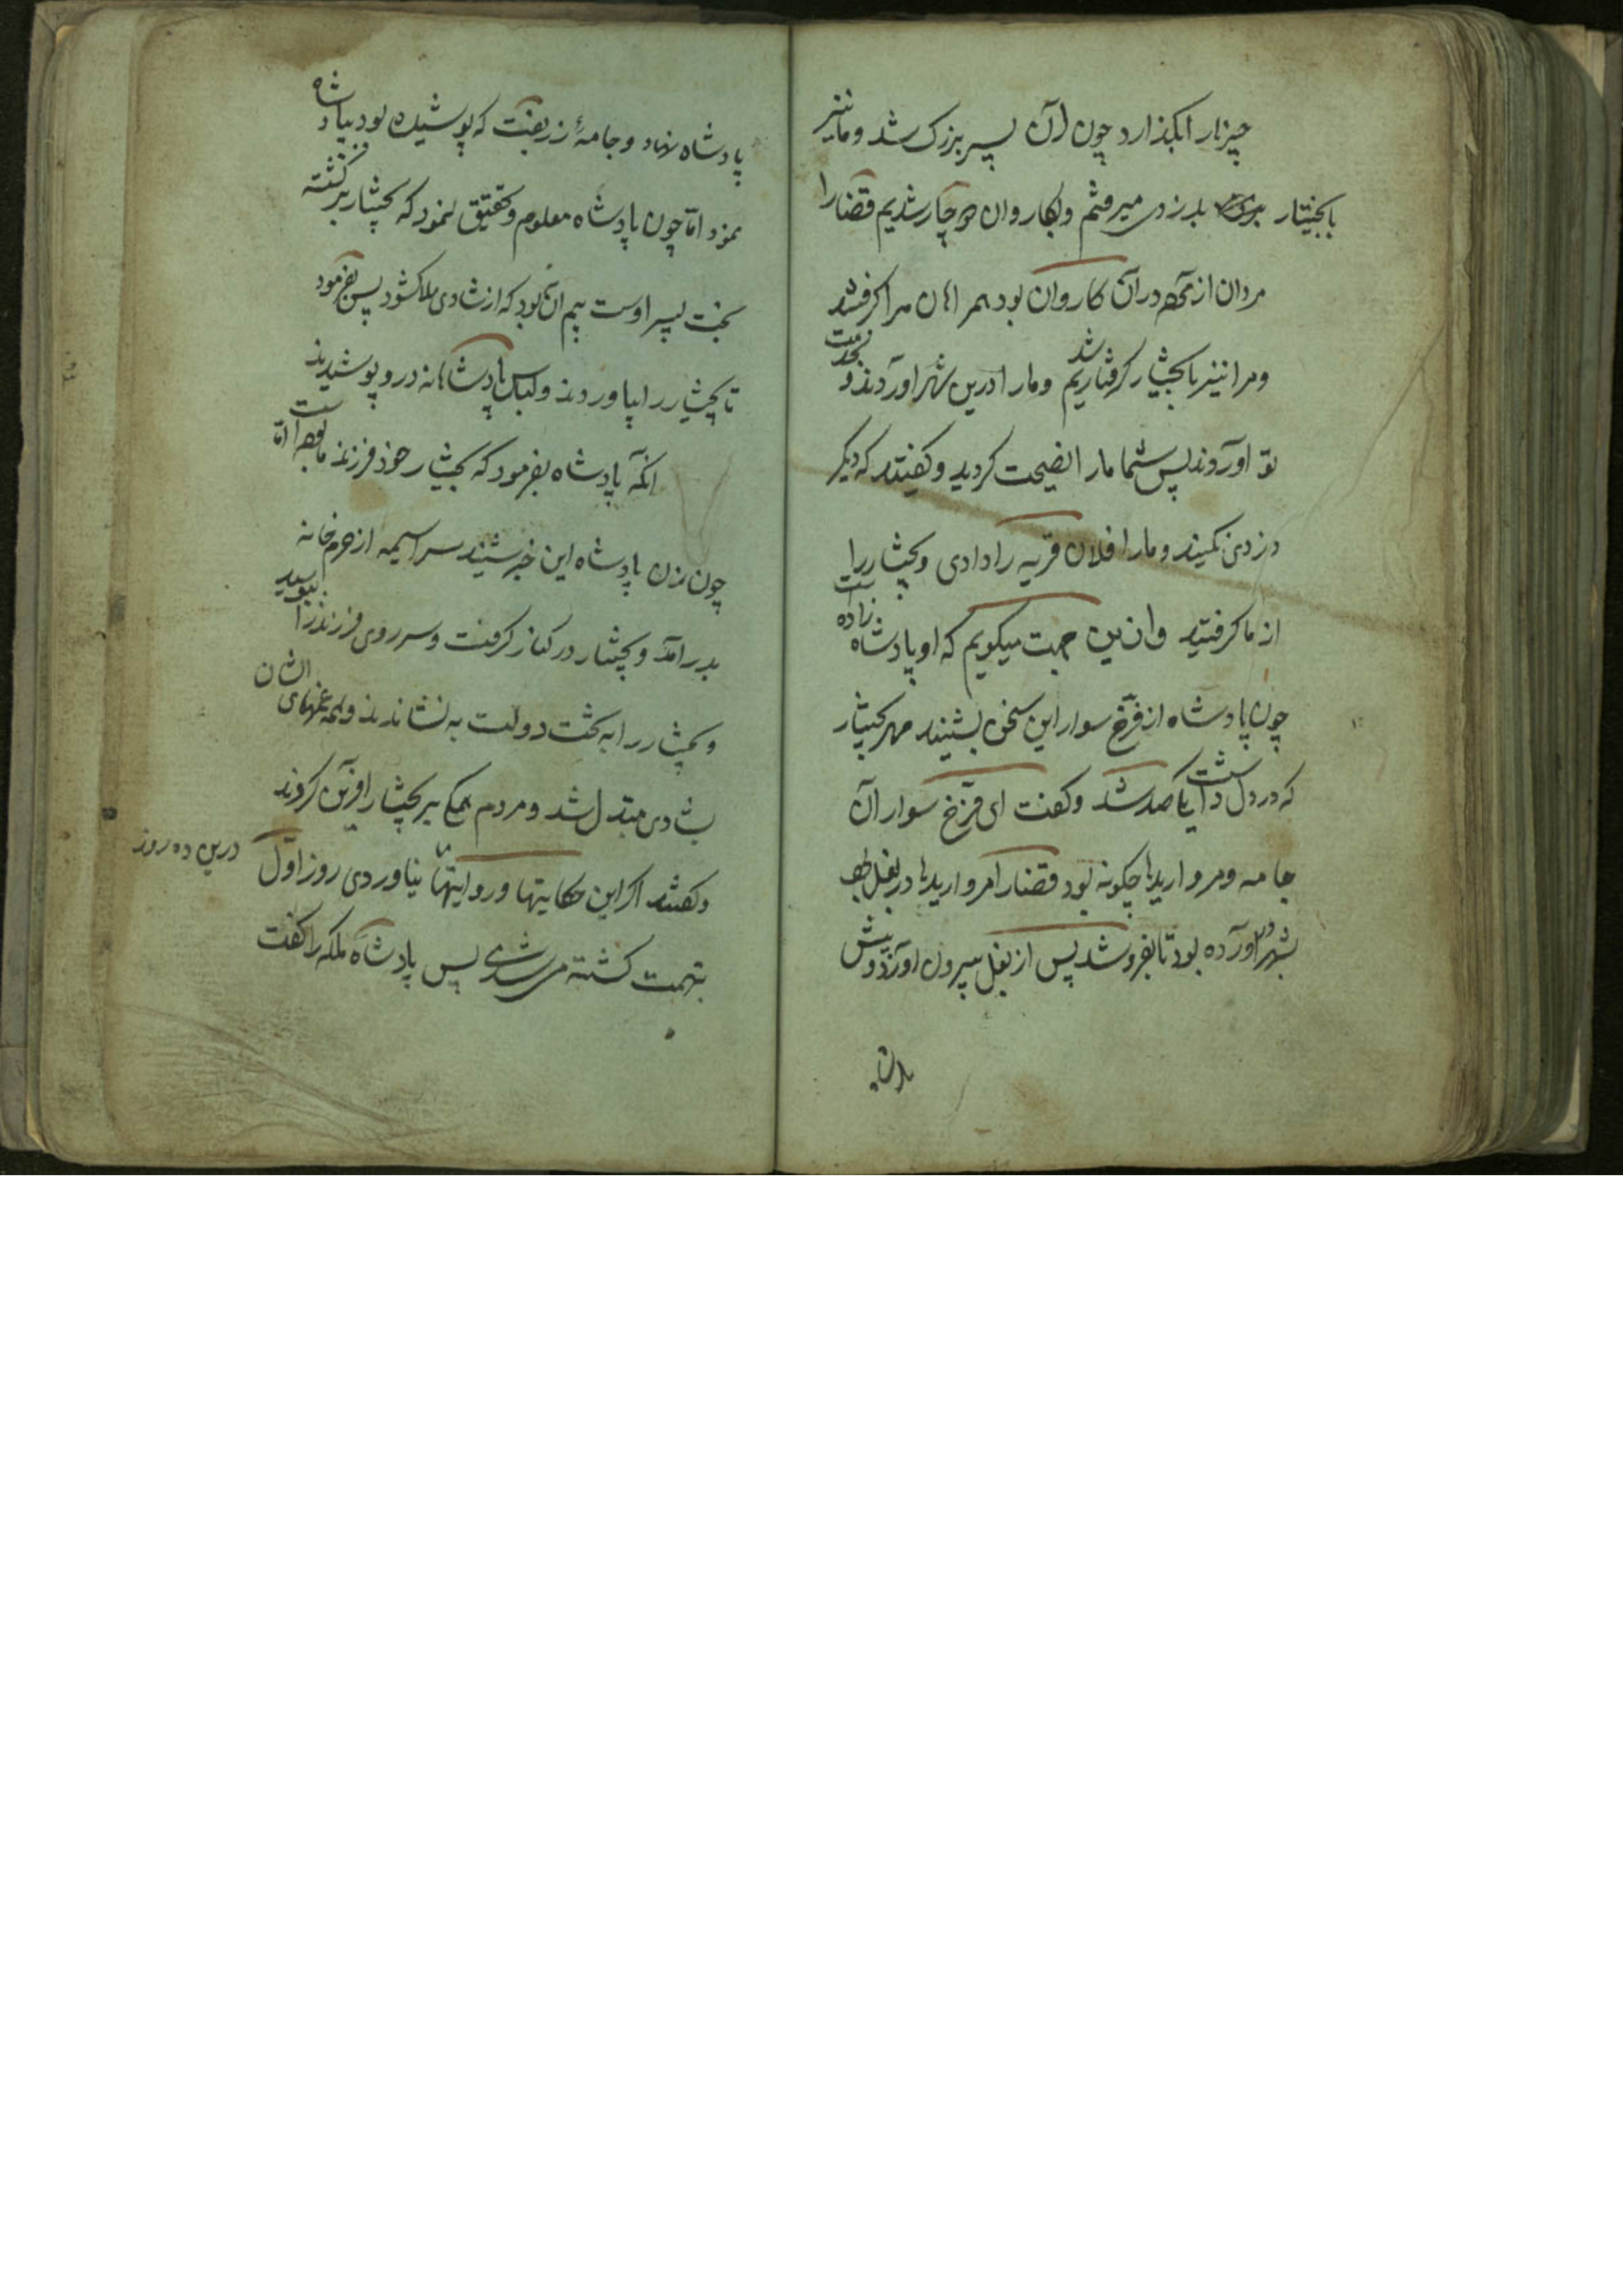 چیزنار ابگذارد چون آن پسر بزرک شد و ما نیز
بابختیار بدزدی میرفتم و بکاروان دو چار شدیم قضارا
مردان از در آن کاروان بود مرا گرفتند
و مرا نیز با بختیار گرفتار شدیم و مارا درین شهر اوردند و بخدمت
تو اوردند پس شما مارا نصیحت کردید و کفتید که دیکر
دزدی نکنید و مارا فلان قریه را دادی و بختیار را
از ما کرفتید و ازین جهت میکویم که او پادشاه زاده است
چون پادشاه از فرّخ سوار این سخن بشنید مهر بختیار
که در دل داشت یکی صد شد و کفت ای فرّخ سوار آن
جامه و مرواریدها چکونه بود قضارا مرواریدها در بغل
بشهر اورده بود تا بفروشد پس از بغل بیرون اورد و پیش
پادشاه
پادشاه نهاد و جامهٔ زربفت که پوشیده بود بپادشاه
نمود امّا چون پادشاه معلوم و تحقیق نمود که بختیار برکشته
بخت پسر اوست بیم آن بود که از شادی هلاک شود پس بفرمود
تا بختیار را بیاوردند و لباس پادشاهانه درو پوشیدند
انکه پادشاه بفرمود که بختیار خود فرزند ما بوده است امّا
چون زن پادشاه این خبر شنید سراسیمه از حرم خانه
بدر آمد و بختیار در کنار کرفت و سر روی فرزند را ببوسید
و بختیار را به تخت دولت به نشاندند و همه غمهای ایشان
بشادی مبدّل شد و مردم همه بر بختیار آفرین کردند
و کفتند اکر این حکایتها و روایتها نیاوردی روز اوّل درین ده روز
بتهمت کشته می شدی پس پادشاه ملکه را کفت